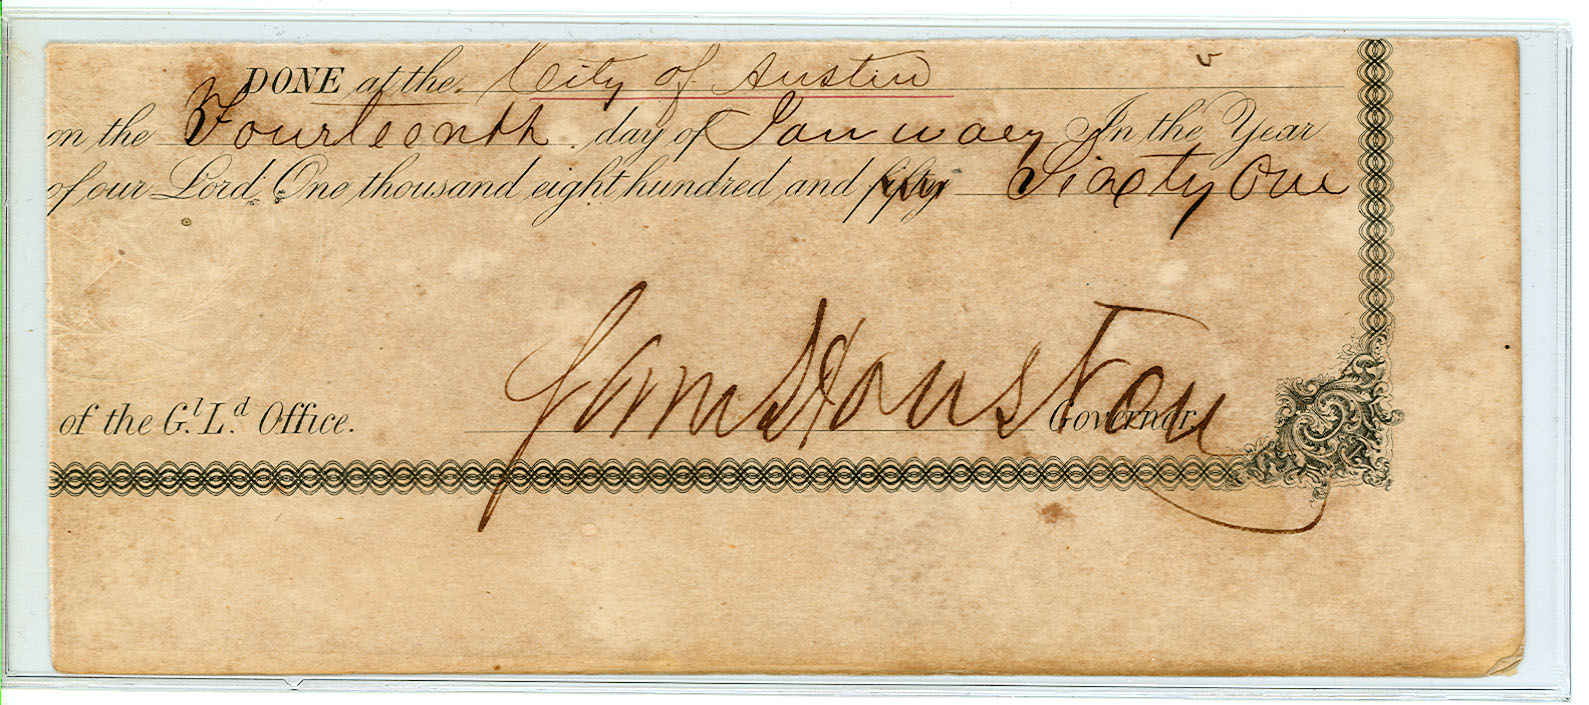 DONE at the City of Austin
on the Fourteenth day of January In the Year
of our Lord One thousand eight hundred and fifty Sixty One
Sam Houston
of the G.l L.d Office. Governor.